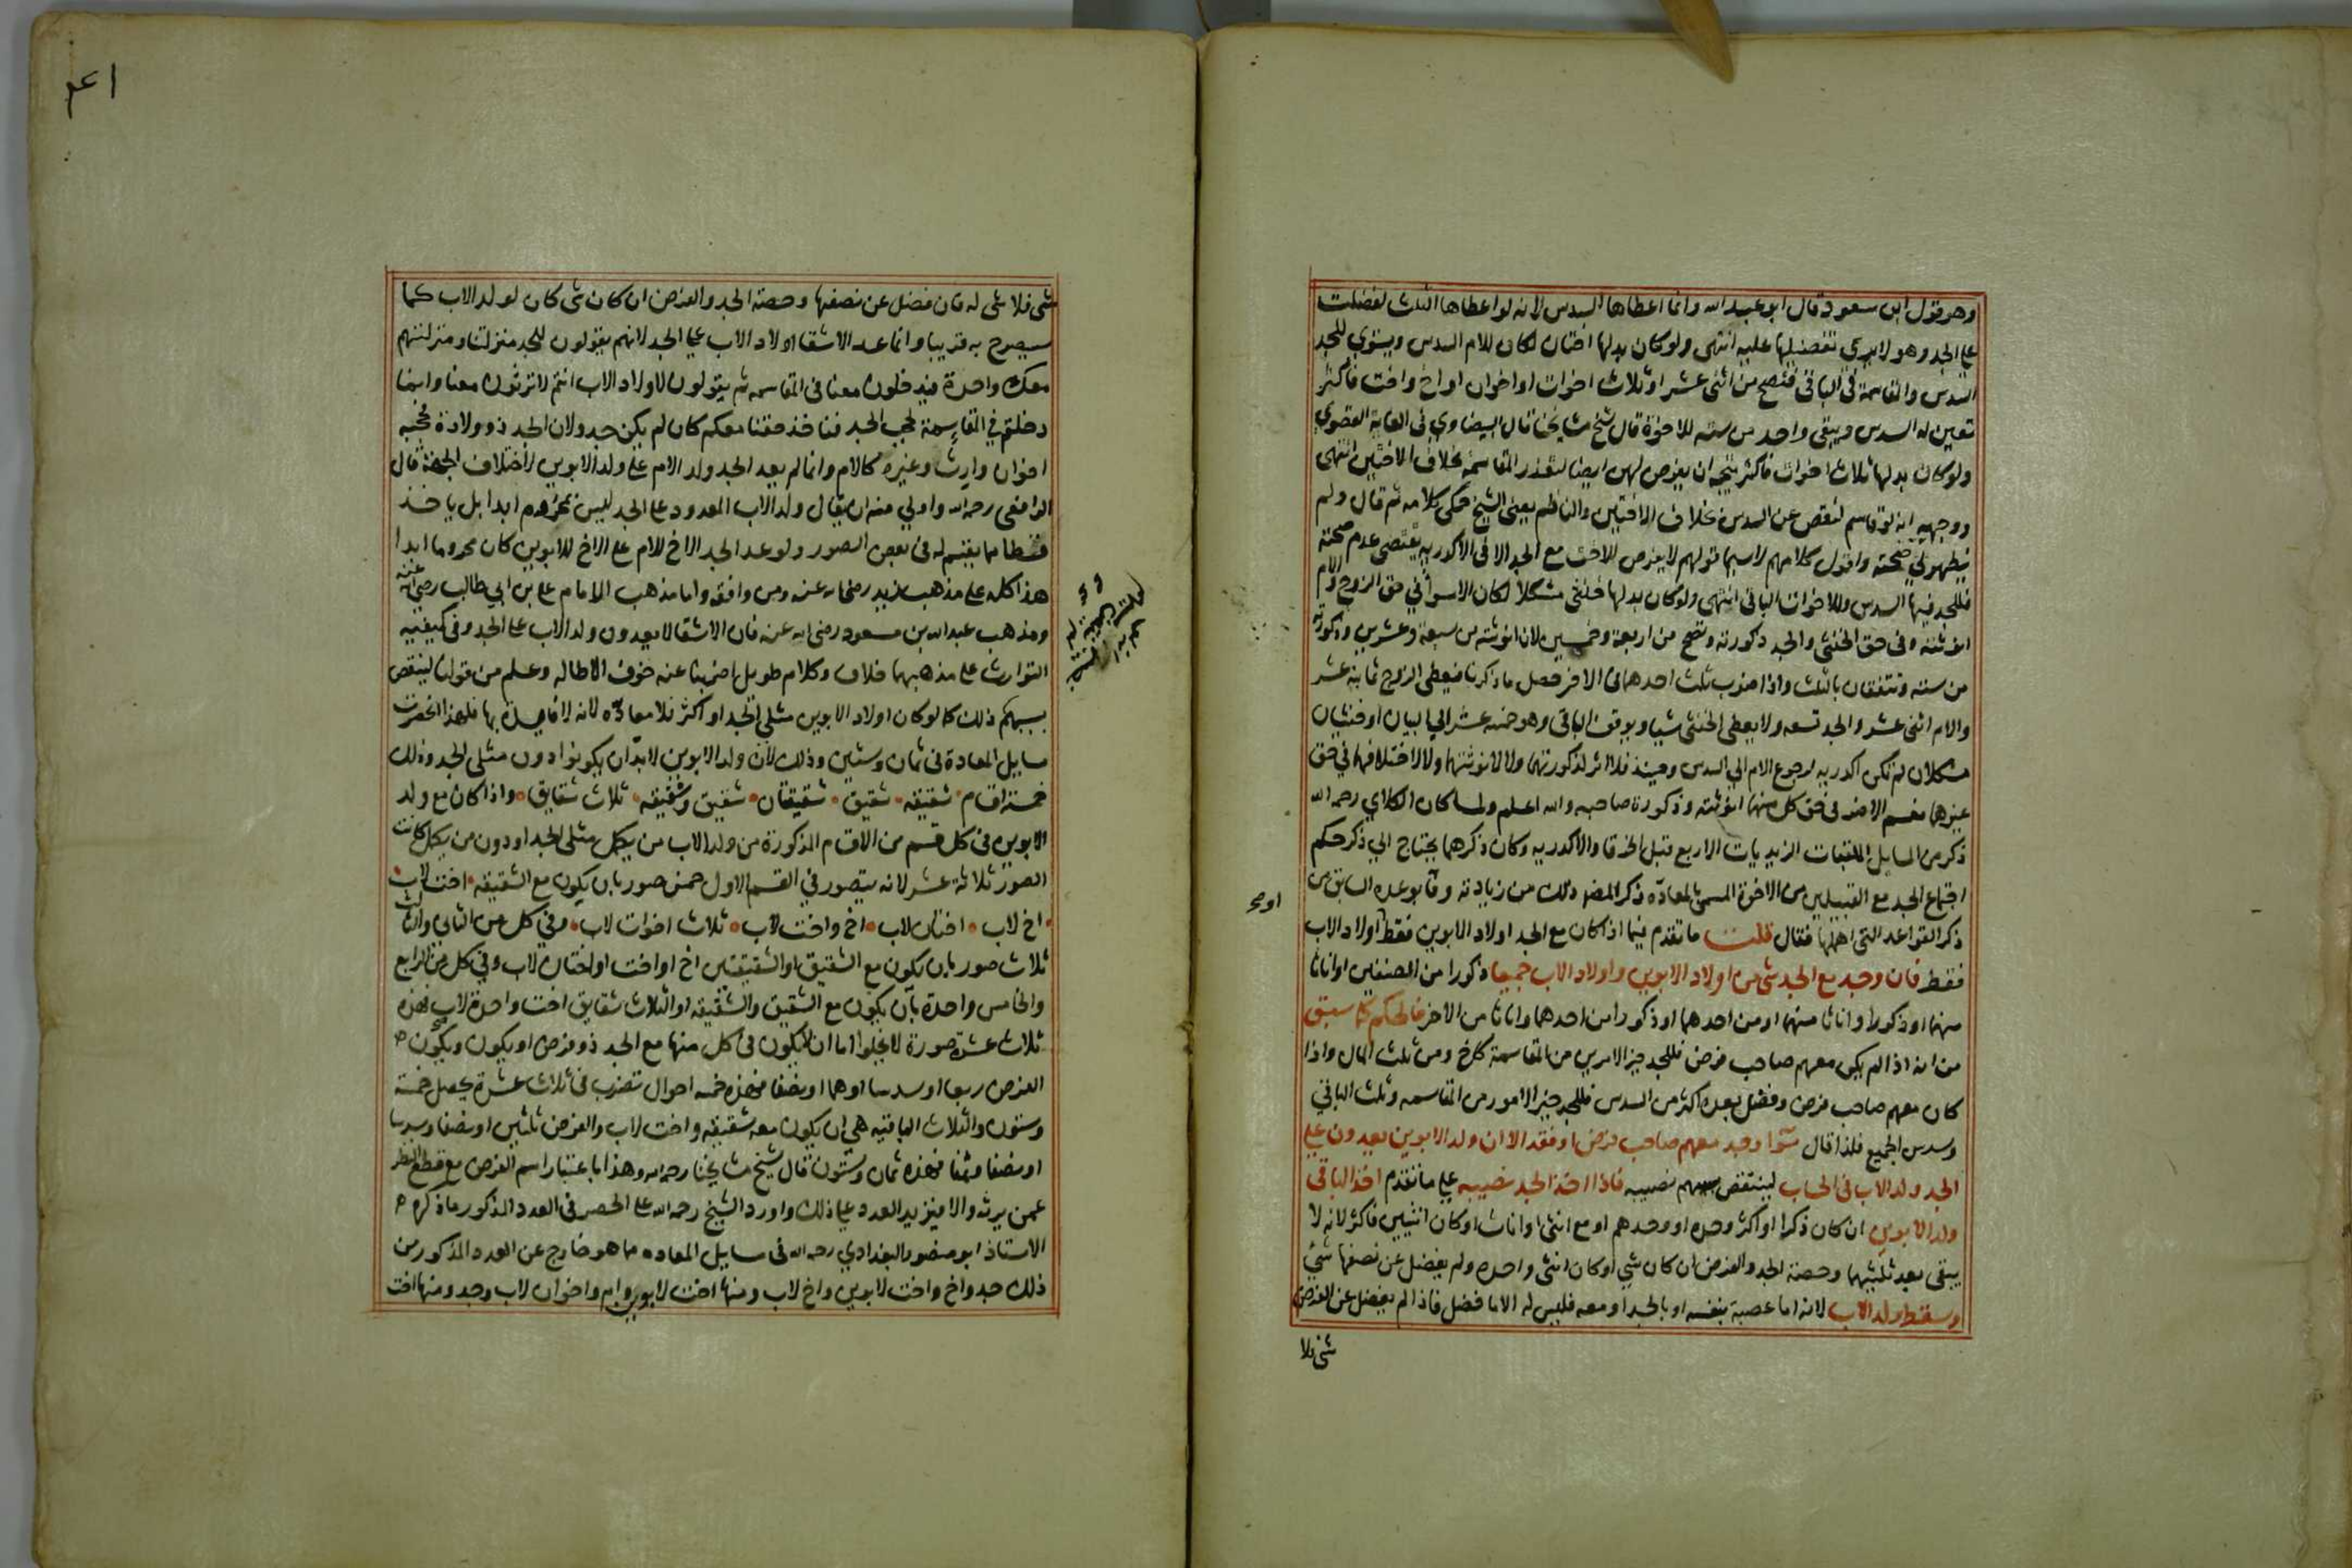 وهو قول ابن مسعود قال ابو عبد الله وانما اعطاها السدس لانه لو اعطاها الثلث لفضلت
علي الجد وهو لا يري تفضيلها عليه انتهى ولو كان بدلها اختان لكان للام السدس ويستوي للجد
السدس والمقاسمة في الباقي فتصح من اثنى عشر او ثلاث اخوات او اخوان او اخ واخت فاكثر
تعين له السدس ويبقى واحد من ستة للاخوة قال شيخ مشايخنا قال البيضاوي في الغاية القصوي
ولو كان بدلها ثلاث اخوات فاكثر يتجه ان يفرض لهن ايضا لتعذر المقاسمة بخلاف الاختين انتهى
ووجهه انه لو قاسم لنقص عن السدس بخلاف الاختين والناظم يعنى الشيخ حكى كلامه ثم قال ولم
يظهر لي صحته واقول كلامهم لا سيما قولهم لا يفرض للاخت مع الجد الا في الاكدريه يقتضى عدم صحته
فللجد فيها السدس وللاخوات الباقى انتهى ولو كان بدلها خنثى مشكلا لكان الاسوأ في حق الزوج والام
انوثته وفى حق الخنثى والجد ذكورته وتصح من اربعة وخمسين لان انوثته من سبعة وعشرين وذكورته
من ستة وتتفقان بالثلث واذا ضرب ثلث احدهما في الاخر حصل ما ذكرنا فيعطى الزوج ثمانية عشر
والام اثنى عشر والجد تسعه ولا يعطى الخنثى شيا ويوقف الباقى وهو خمسه عشر الي البيان او خنثيان
مشكلان لم تكن اكدريه لرجوع الام الي السدس وحينئذ فلا اثر لذكورتهما ولا لانوثتهما ولا لاختلافهما في حق
غيرهما نعم الاضر في حق كل منهما انوثته وذكورة صاحبه والله اعلم ولما كان الكلاي رحمه الله
ذكر من المسايل الملقبات الزيديات الاربع قبل الخرقا والاكدريه وكان ذكرهما يحتاج الي ذكر حكم
اجتماع الجد مع القبيلين من الاخوة المسمى بالمعادّه ذكر المصنف ذلك من زيادته وفآ بوعده السابق من
ذكر القواعد التى اهملها فقال قلت ما تقدم فيما اذا كان مع الجد اولاد الابوين فقط او اولاد الاب
فقط فان وجد مع الجد شى من اولاد الابوين واولاد الاب جميعا ذكورا من الصنفين او اناثا
منهما او ذكورا واناثا منهما او من احدهما او ذكورا من احدهما واناثا من الاخر فالحكم كما سبق
من انه اذا لم يكن معهم صاحب فرض فللجد خير الامرين من المقاسمة كاخ ومن ثلث المال واذا
كان معهم صاحب فرض وفضل بعده اكثر من السدس فللجد خير الامور من المقاسمه وثلث الباقي
وسدس الجميع فلذا قال سوآ وجد معهم صاحب فرض او فقد الا ان ولد الابوين يعدون علي
الجد ولد الاب في الحساب لينتقص بسببهم نصيبه فاذا اخذ الجد نصيبه علي ما تقدم اخذ الباقي
ولد الابوين ان كان ذكرا او اكثر وحده او وحدهم او مع انثى او اناث او كان انثيين فاكثر لانه لا
يبقى بعد ثلثيهما وحصة الجد والفرض ان كان شي او كان انثى واحده ولم يفضل عن نصفها شئ
وسقط ولد الاب لانه اما عصبة بنفسه او بالجد او معه فليس له الا ما فضل فاذا لم يفضل عن الفرض
شى فلا
شى فلا شى له فان فضل عن نصفها وحصة الجد والفرض ان كان شى كان لولد الاب كما
سيصرح به قريبا وانما عد الاشقا اولاد الاب علي الجد لانهم يقولون للجد منزلتنا ومنزلتهم
معك واحدة فيدخلون معنا في المقاسمه ثم يقولون لاولاد الاب انتم لا ترثون معنا وانما
دخلتم في المقاسمة لحجب الجد فناخذ حقنا معكم كان لم يكن جد ولان الجد ذو ولادة يحجبه
اخوان وارث وغيره كالام وانما لم يعد الجد ولد الام علي ولد الابوين لاختلاف الجهة قال
الرافعى رحمه الله واولي منه ان يقال ولد الاب المعدود على الجد ليس بمحروم ابدا بل ياخذ
قسطا مما يقسم له في بعض الصور ولو عد الجد الاخ للام على الاخ للابوين كان محروما ابدا
هذا كله على مذهب زيد رضى الله عنه ومن وافقه واما مذهب الامام على بن ابي طالب رضى الله عنه
ومذهب عبد الله بن مسعود رضى الله عنه فان الاشقا لا يعدون ولد الاب على الجد وفى كيفيه
التوارث على مذهبهما خلاف وكلام طويل اضربنا عنه خوف الاطاله وعلم من قولنا لينقص
بسببهم ذلك كما لو كان اولاد الابوين مثلي الجد او اكثر فلا معادّه لانه لا فايدة بها فلهذا انحصرت
مسايل المعادة في ثمان وستين وذلك لان ولد الابوين لابد ان يكونوا دون مثلى الجد وذلك
خمسة اقسام شقيقه شقيق شقيقتان شقيق وشقيقه ثلاث شقايق واذا كان مع ولد
الابوين في كل قسم من الاقسام المذكورة من ولد الاب من يكمل مثلى الجد او دون من يكمل كانت
الصور ثلاثة عشر لانه يتصور في القسم الاول خمس صور بان يكون مع الشقيقه اخت لاب
اخ لاب اختان لاب اخ واخت لاب ثلاث اخوات لاب وفي كل من الثاني والثالث
ثلاث صور بان يكون مع الشقيق او الشقيقتين اخ او اخت او اختان لاب وفي كل من الرابع
والخامس واحدة بان يكون مع الشقيق والشقيقه او الثلاث شقايق اخت واحدة لاب فهذه
ثلاث عشرة صورة لا يخلوا اما ان لا يكون في كل منها مع الجد ذو فرض او يكون ويكون
الفرض ربعا او سدسا او هما او نصفا فهذه خمسه احوال تضرب في ثلاث عشرة يحصل خمسة
وستون والثلاث الباقيه هى ان يكون معه شقيقه واخت لاب والفرض ثلثين او نصفا وسدسا
او نصفا وثمنا فهذه ثمان وستون قال شيخ مشايخنا رحمه الله وهذا باعتبار اسم الفرض مع قطع النظر
عمن يرثه والا فيزيد العدد علي ذلك واورد الشيخ رحمه الله على الحصر في العدد المذكور ما ذكره
الاستاذ ابو منصور البغدادي رحمه الله في مسايل المعاده مما هو خارج عن العدد المذكور من
ذلك جد واخ واخت لابوين واخ لاب ومنها اخت لابوين وام واخوان لاب وجد ومنها اخت